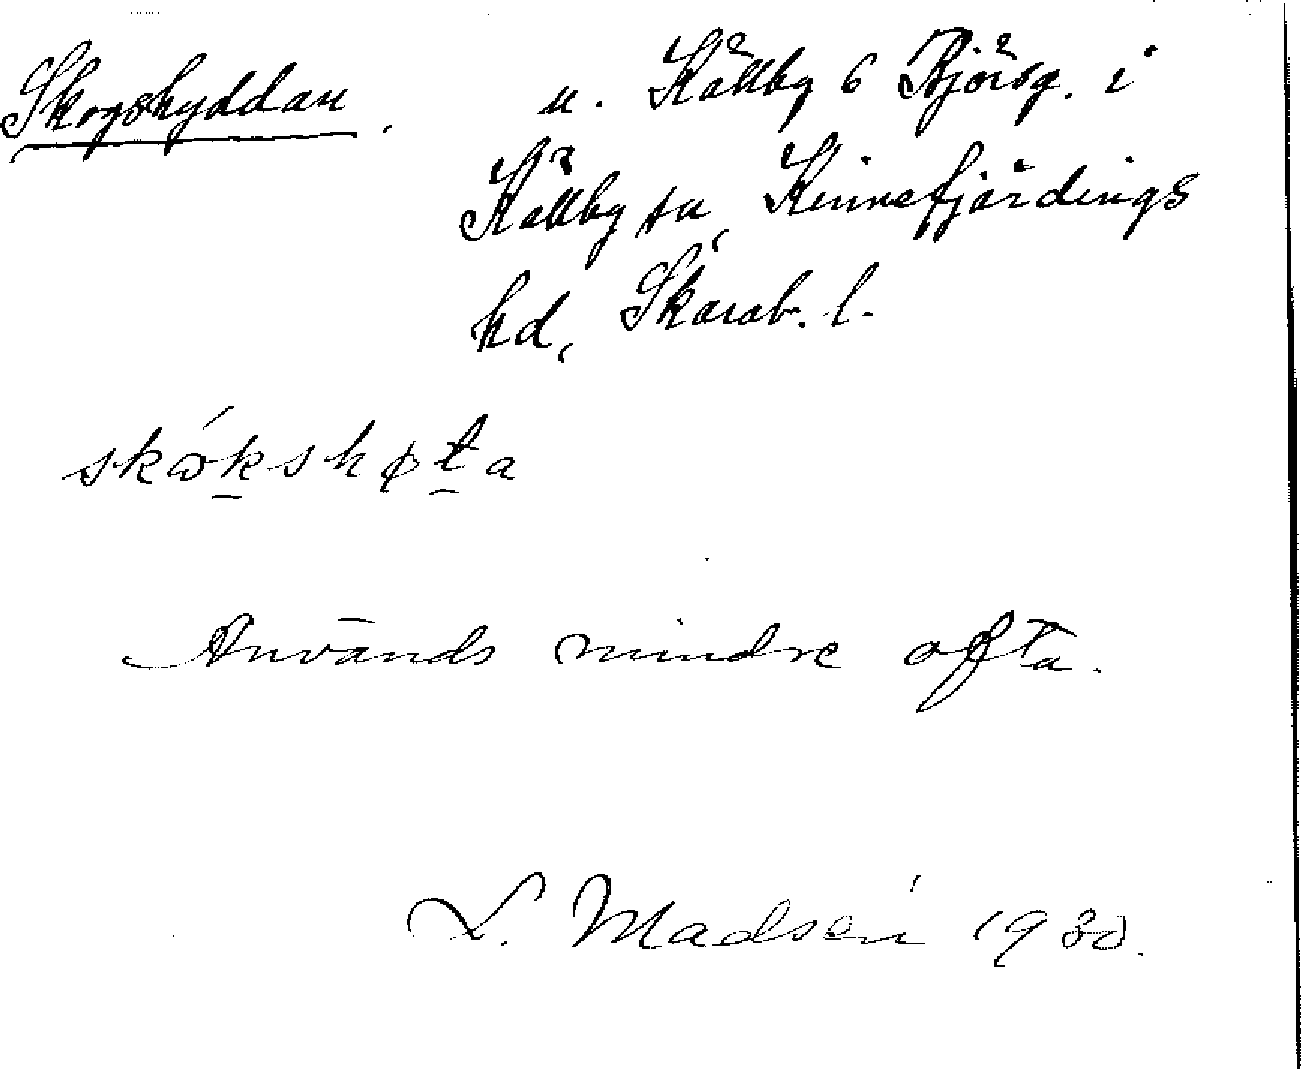 Skogshyddan. u. Källby 6 Björsg. i
Källby sn, Kinnefjärdings
hd, Skarab. l.
Används mindre ofta.
L. Madsén 1930.